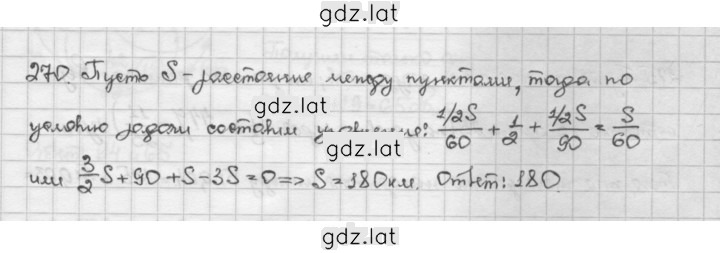 gdz.lat
270 Пусть S-расстояние между пунктами, тогда по
gdz.lat
условию задачи составим уравнение: 1/2S/60 + 1/2 + 1/2S/90 = S/60
или 3/2 S + 90 + S - 3S = 0 => S = 180 км. Ответ: 180.
gdz.lat
gdz.lat